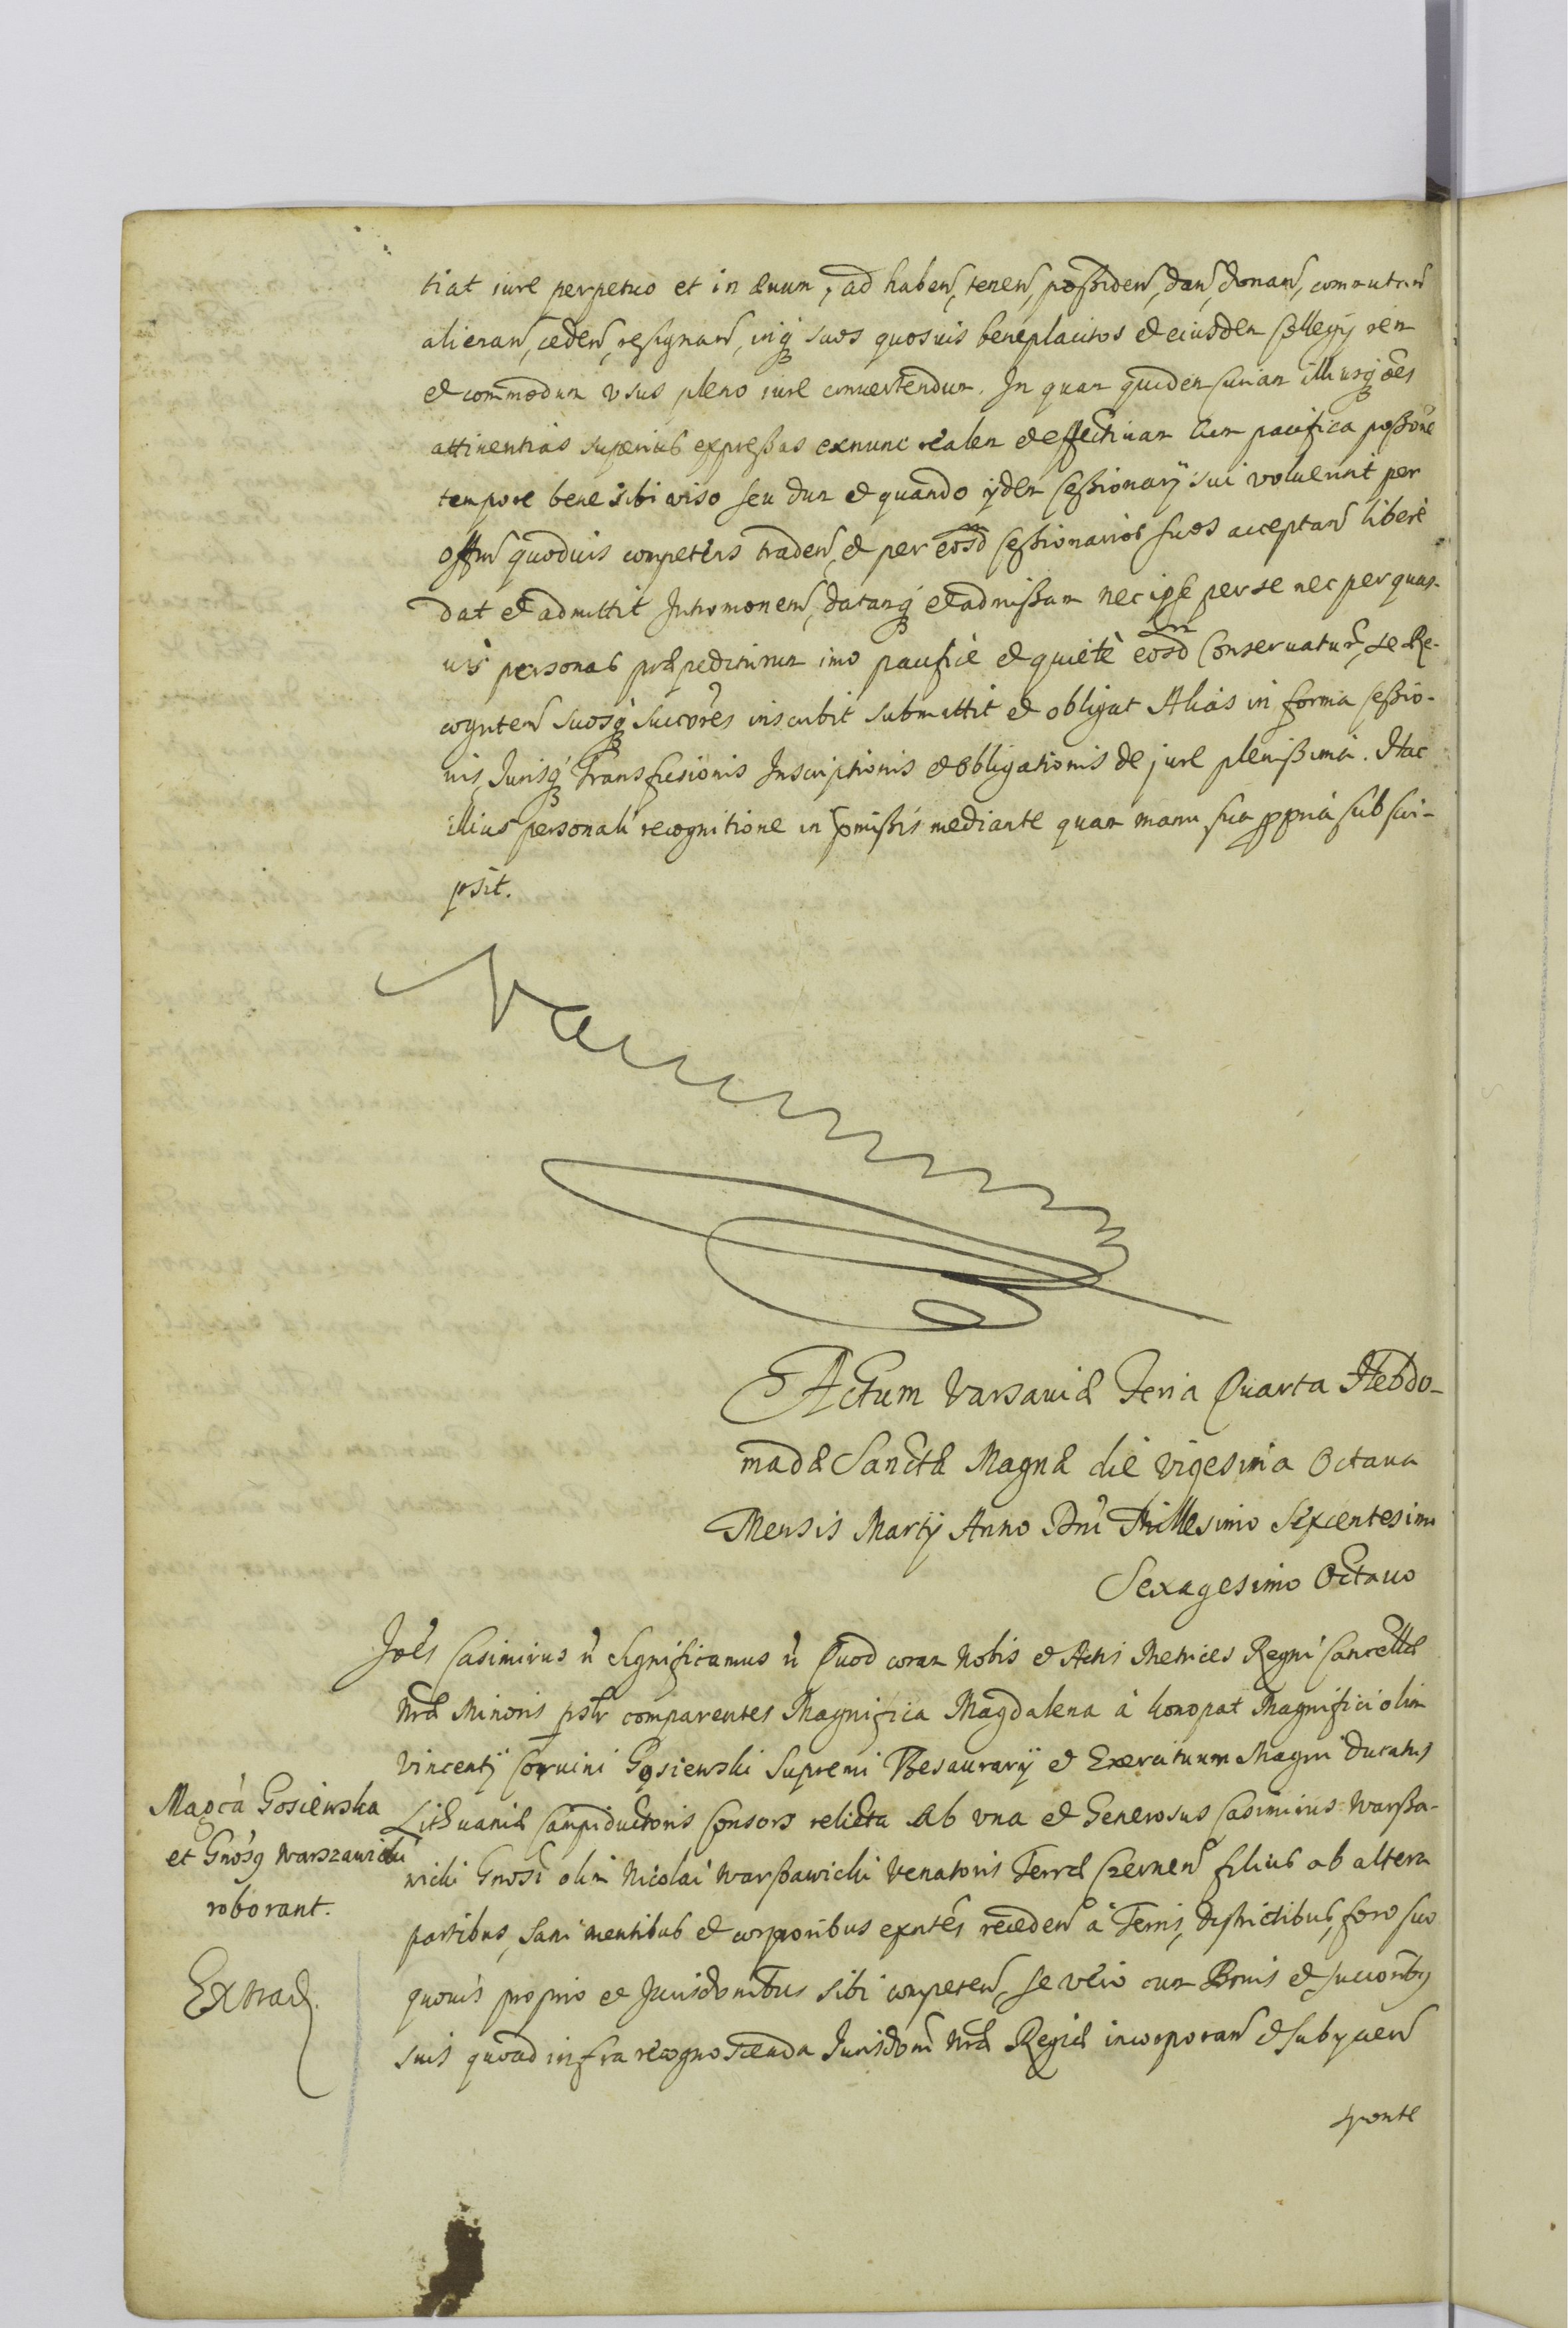 tiat iure perpetuo et in æuum, ad haben, tenen, possiden, dan, donan, commutan
alienan, ceden, resignan, inq suos quosuis beneplacitos et eiusdem Collegij rem
et commodum vsus pleno iure conuertendum. In quam quidem Curiam illiusq oes
attinentias superius expressas exnunc realem et effectiuam cum pacifica possone
tempore bene sibi viso seu dum et quando ijdem Cessionarij sui voluerint per
offm quoduis competens traden, et per eosdm Cessionarios suos acceptan liberè
dat et admittit Intromonem, datamq et admissam nec ipse per se nec per quas-
uis personas præpediturum imo pacificè et quietè eosdm Conseruatur, se Re-
cognten suosq succores inscribit submittit et obligat Alias in forma Cessio-
nis, Jurisq Transfusionis Inscriptionis et obligationis de jure plenissima. Hac
illius personali recognitione in pmissis mediante quam manu sua ppria subscri-
psit.
Actum Varsauiæ Feria Quarta Hebdo-
madæ Sanctæ Magnæ die vigesima Octaua
Mensis Martij Anno Dni Millesimo Sexcentesimo
Sexagesimo Octauo
Joes Casimirus etc Significamus etc Quod coram Nobis et Actis Metrices Regni Cancellæ
Nræ Minoris pslr comparentes Magnifica Magdalena à Konopat Magnifici olim
Vincentij Coruini Gosiewski Supremi Thesaurarij et Exercituum Magni Ducatus
Lithuaniæ Campiductoris Consors relicta Ab vna et Generosus Casimirus Warsza-
wicki Gnosi olim Nicolai Warszawicki Venatoris Terræ Czernen filius ab altera
partibus, sani mentibus et corporibus exntes receden à Terris, Districtibus, foro suo
quouis proprio et Jurisdonibus sibi competen, se vero cum Bonis et succoribus
suis quoad infra recognoscenda Jurisdoni Nræ Regiæ incorporan et subijcien
sponte
Magca Gosiewska
et Gnosq Warszawicki
roborant.
Extrad.